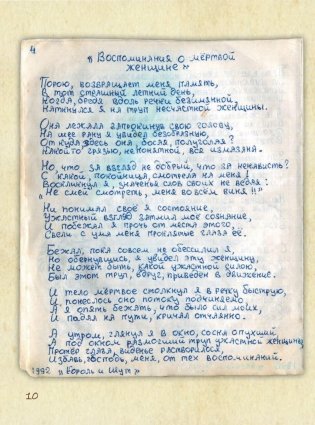 4
"Воспоминания о мёртвой
женщине"
Порою, возвращает меня память,
В тот страшный летний день,
Когда, бредя вдоль речки безымянной,
Наткнулся я на труп несчастной женщины.
Она лежала запрокинув свою голову,
На шее рану я увидел безобразную,
Откуда здесь она, босая, полуголая?
Какой-то грязью, непонятной, вся измазана.
Но что за взгляд недобрый, что за ненависть?
С какой, покойница, смотрела на меня!
Воскликнул я, значенья слов своих не ведая:
"Не смей смотреть, меня во всём виня!"
Ни понимал своё я состояние,
Ужастный взгляд затмил моё сознание,
И побежал я прочь от места этого,
Свели с ума меня проклятые глаза её.
Бежал, пока совсем не обессилил я,
Но обернувшись, я увидел эту женщину,
Не может быть, какой ужастной силою,
Был этот труп, вдруг, приведён в движение.
И тело мёртвое столкнул я в речку быструю,
И понеслось оно потоку подчиняемо
А я опять бежать, что было сил моих,
И падал на пути, кричал отчаянно.
А утром, глянул я в окно, со сна опухший
А под окном размокший труп ужастной женщины
Протёр глаза, виденье растворилося,
Избавь, господь, меня, от тех воспоминаний.
1992 "Король и Шут"
10